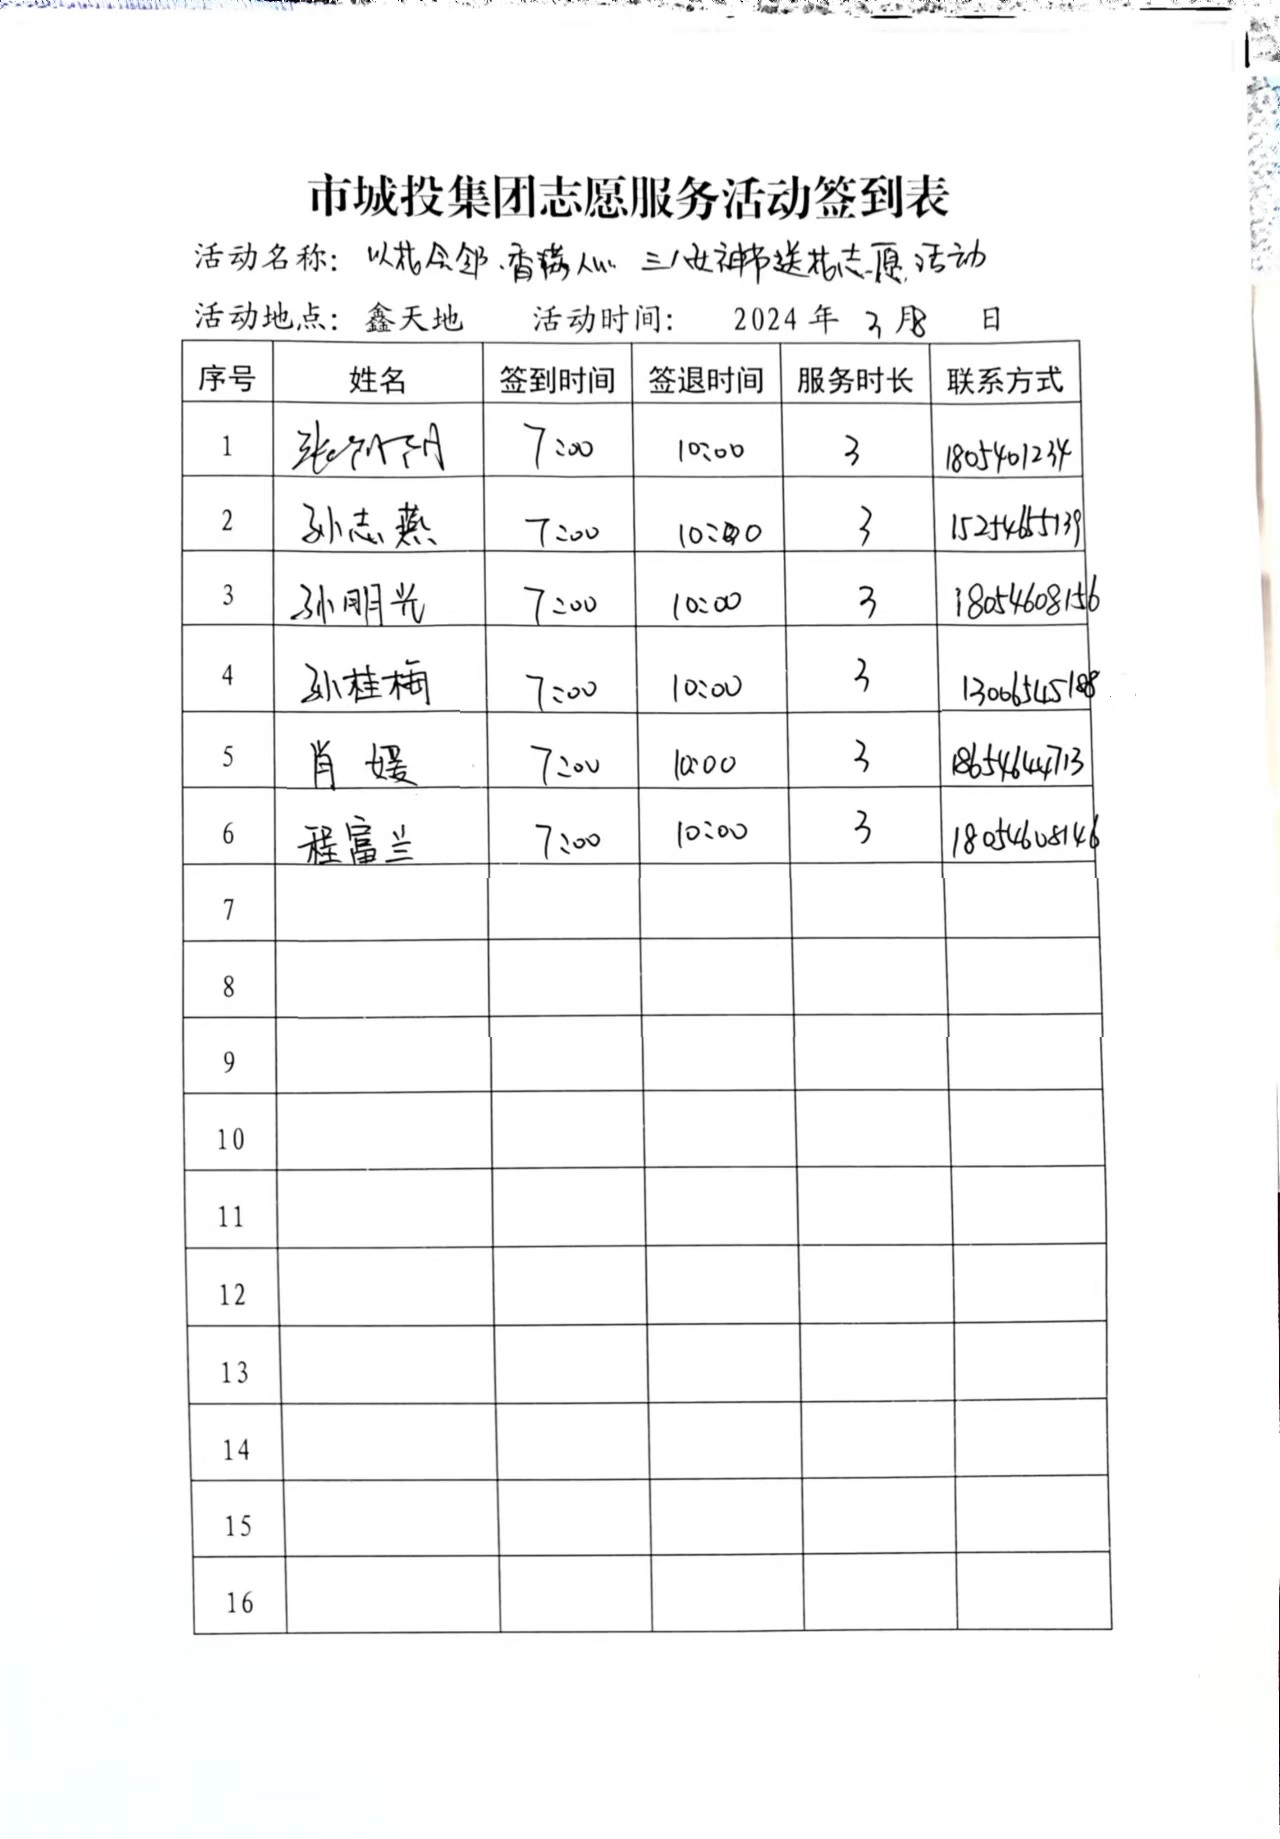 市城投集团志愿服务活动签到表
活动名称: 以花会邻·香满人心 三八女神节送花志愿活动
活动地点: 鑫天地 活动时间: 2024年 3月8 日
序号 姓名 签到时间 签退时间 服务时长 联系方式
1 张 7:00 10:00 3 1805401234
2 孙志燕 7:00 10:00 3 15254655139
3 孙明光 7:00 10:00 3 18054608156
4 孙桂梅 7:00 10:00 3 13006545188
5 肖媛 7:00 10:00 3 18654644713
6 程富兰 7:00 10:00 3 18054608146
7
8
9
10
11
12
13
14
15
16